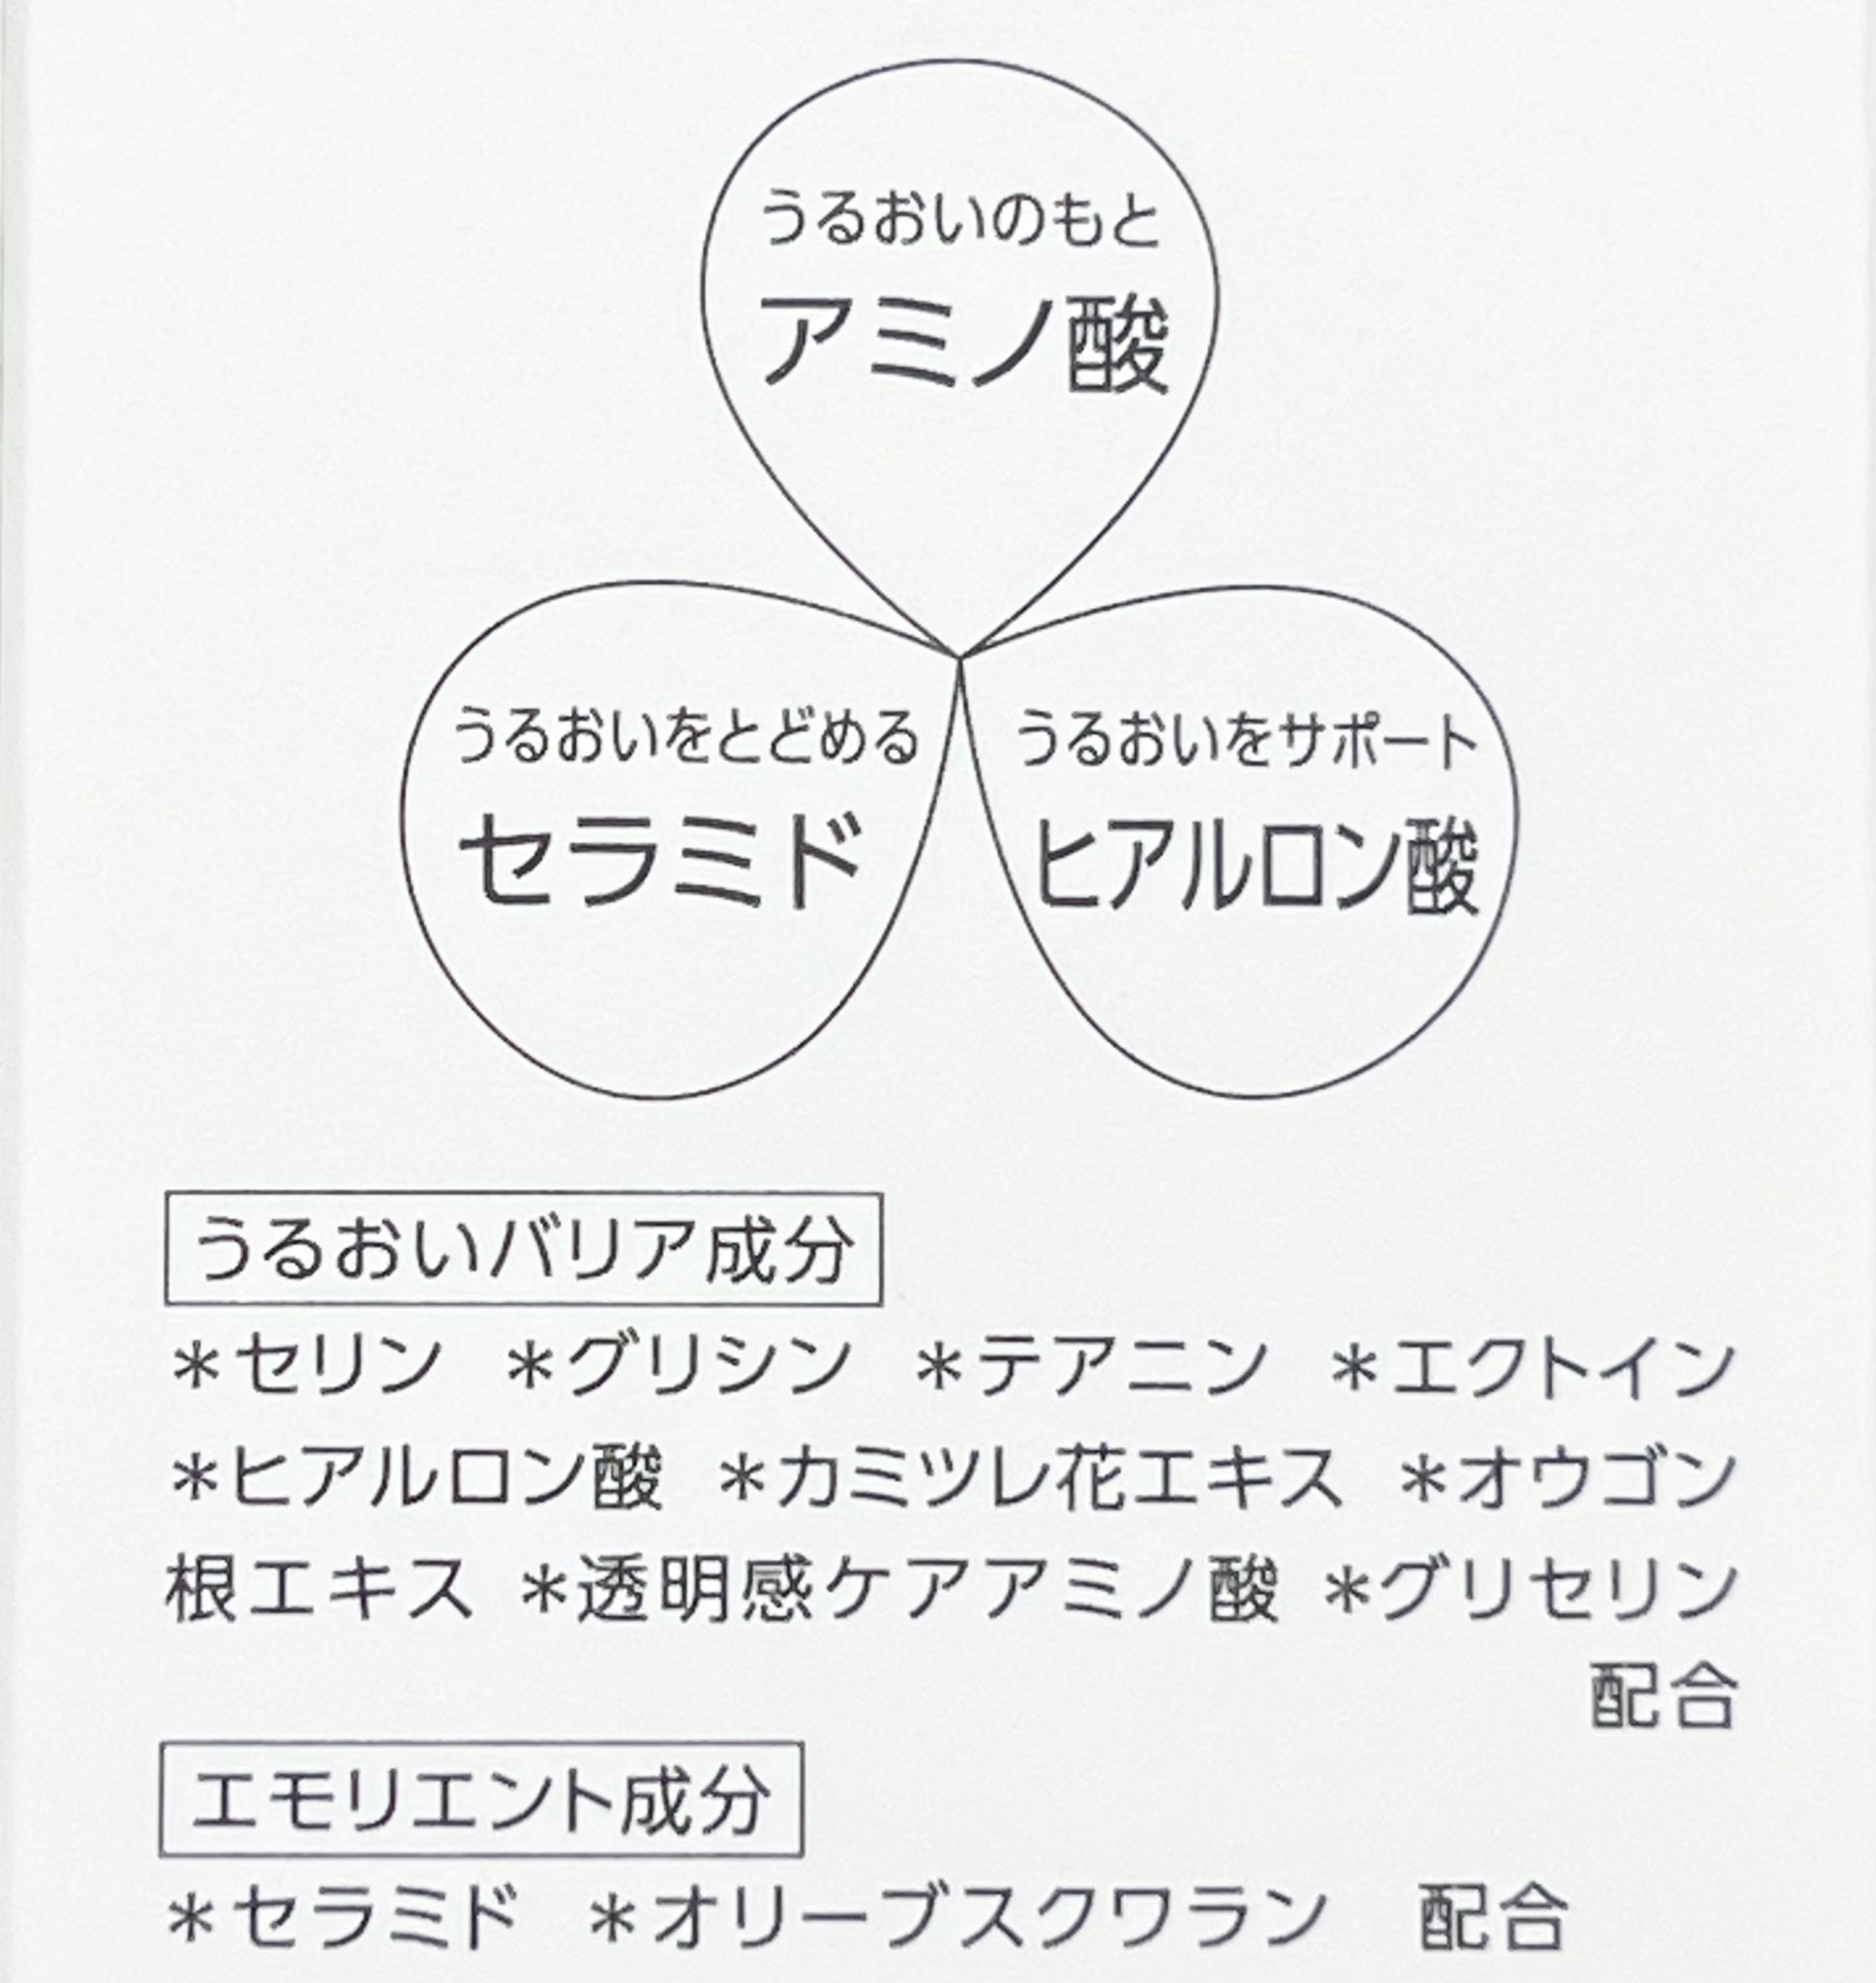 うるおいのもと
アミノ酸
うるおいをとどめる
セラミド
うるおいをサポート
ヒアルロン酸
うるおいバリア成分
＊セリン ＊グリシン ＊テアニン ＊エクトイン
＊ヒアルロン酸 ＊カミツレ花エキス ＊オウゴン
根エキス ＊透明感ケアアミノ酸 ＊グリセリン
配合
エモリエント成分
＊セラミド ＊オリーブスクワラン 配合